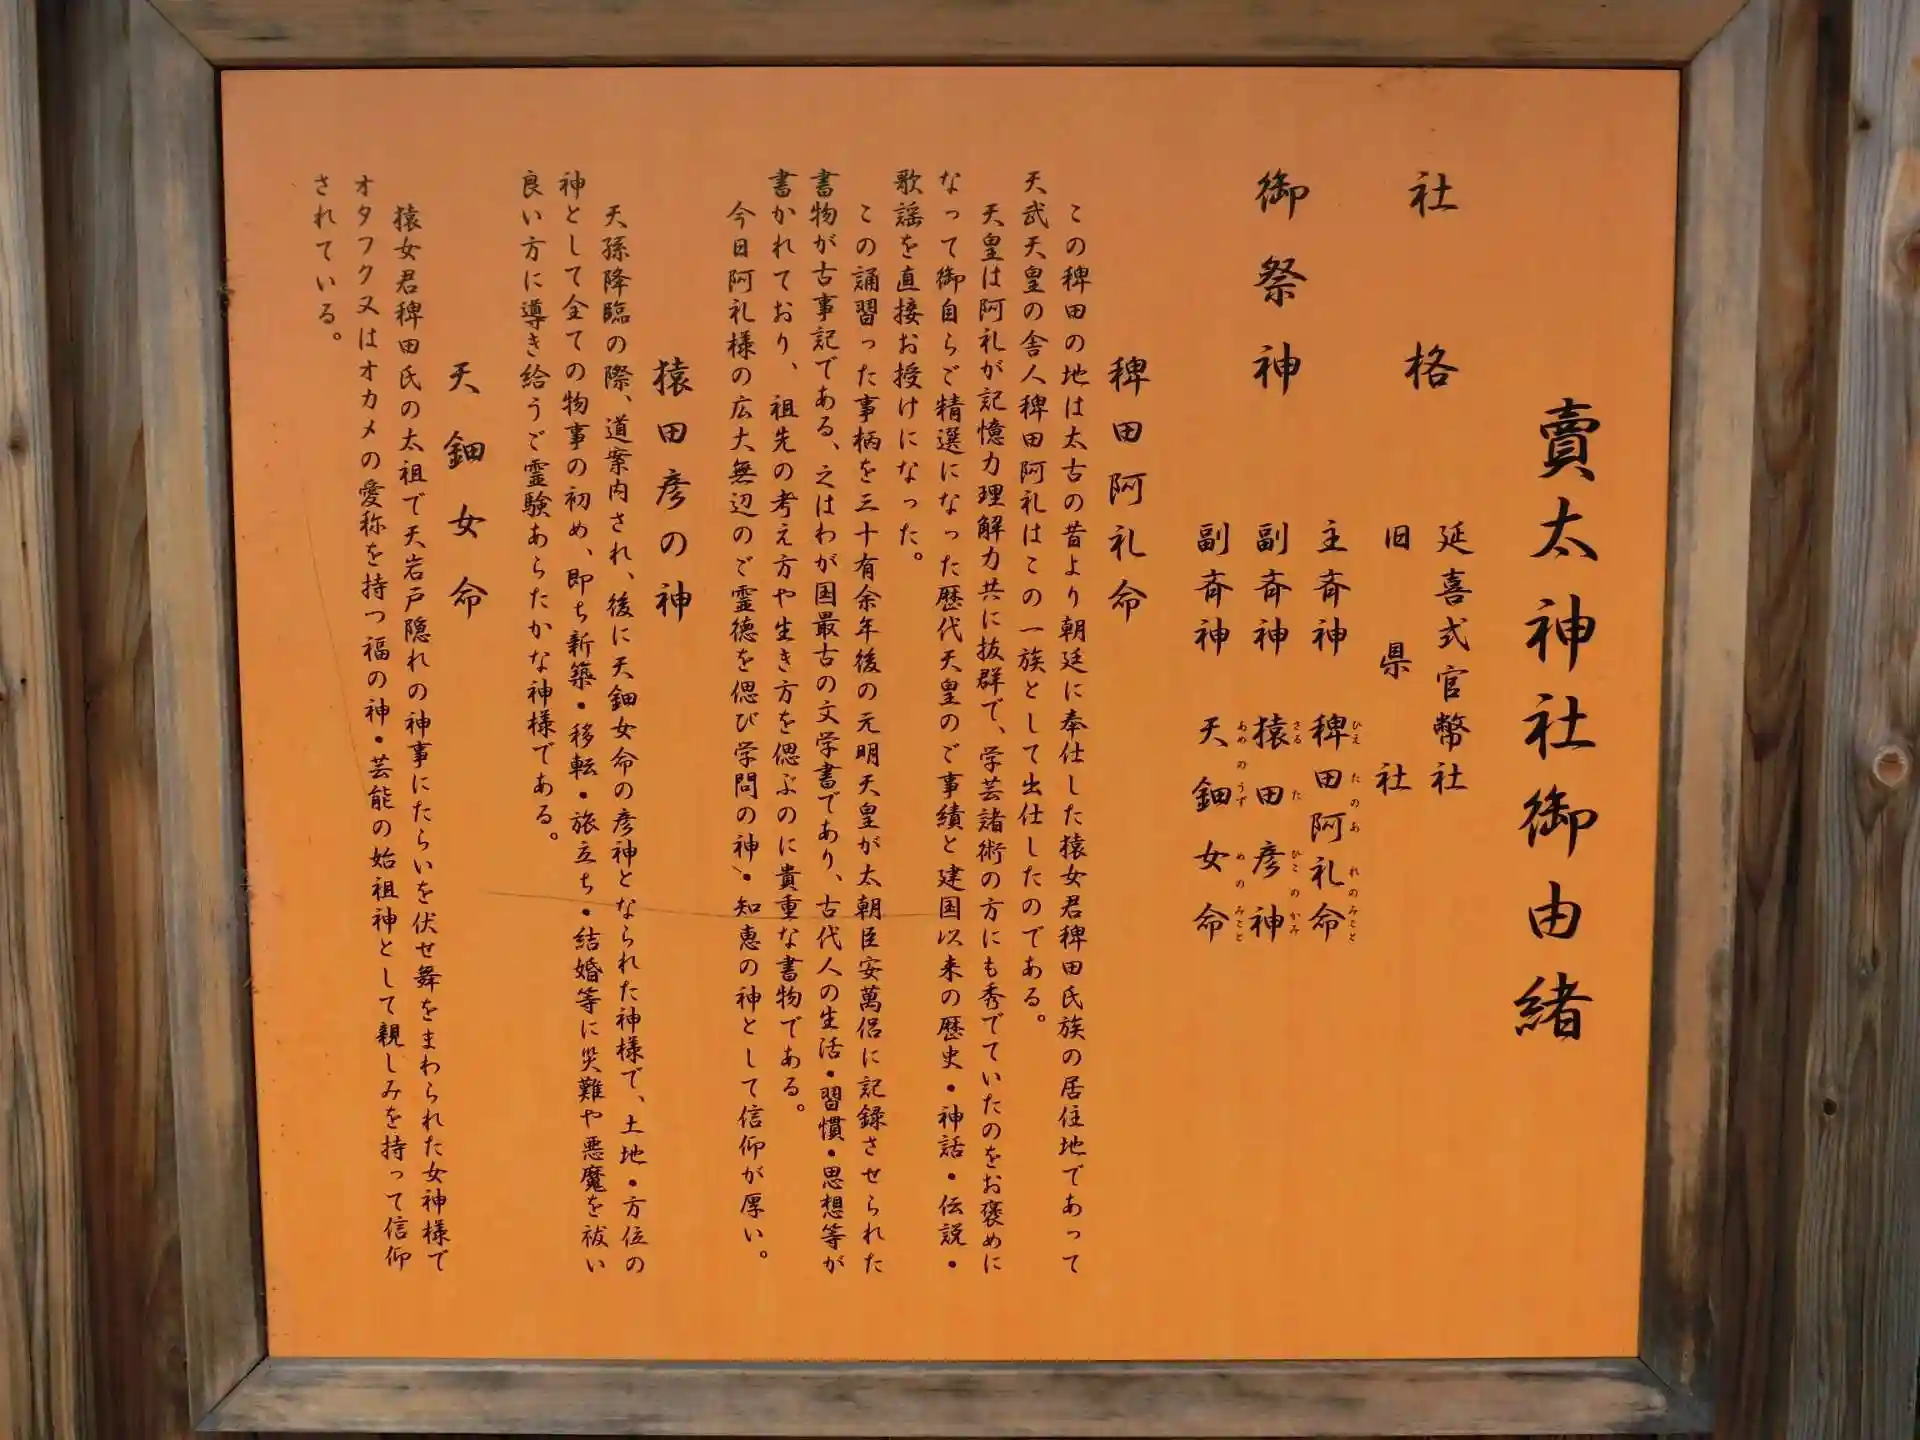 賣太神社御由緒
社格
延喜式官幣社
旧県社
御祭神
主斉神 稗田阿礼命
ひえたのあれのみこと
副斉神 猿田彦神
さるたひこのかみ
副斉神 天鈿女命
あめのうずめのみこと
稗田阿礼命
この稗田の地は太古の昔より朝廷に奉仕した猿女君稗田氏族の居住地であって
天武天皇の舎人稗田阿礼はこの一族として出仕したのである。
天皇は阿礼が記憶力理解力共に抜群で、学芸諸術の方にも秀でていたのをお褒めに
なって御自らご精選になった歴代天皇のご事績と建国以来の歴史・神話・伝説・
歌謡を直接お授けになった。
この誦習った事柄を三十有余年後の元明天皇が太朝臣安萬侶に記録させられた
書物が古事記である、之はわが国最古の文学書であり、古代人の生活・習慣・思想等が
書かれており、祖先の考え方や生き方を偲ぶのに貴重な書物である。
今日阿礼様の広大無辺のご霊徳を偲び学問の神・知恵の神として信仰が厚い。
猿田彦の神
天孫降臨の際、道案内され、後に天鈿女命の彦神となられた神様で、土地・方位の
神として全ての物事の初め、即ち新築・移転・旅立ち・結婚等に災難や悪魔を祓い
良い方に導き給うご霊験あらたかな神様である。
天鈿女命
猿女君稗田氏の太祖で天岩戸隠れの神事にたらいを伏せ舞をまわられた女神様で
オタフク又はオカメの愛称を持つ福の神・芸能の始祖神として親しみを持って信仰
されている。